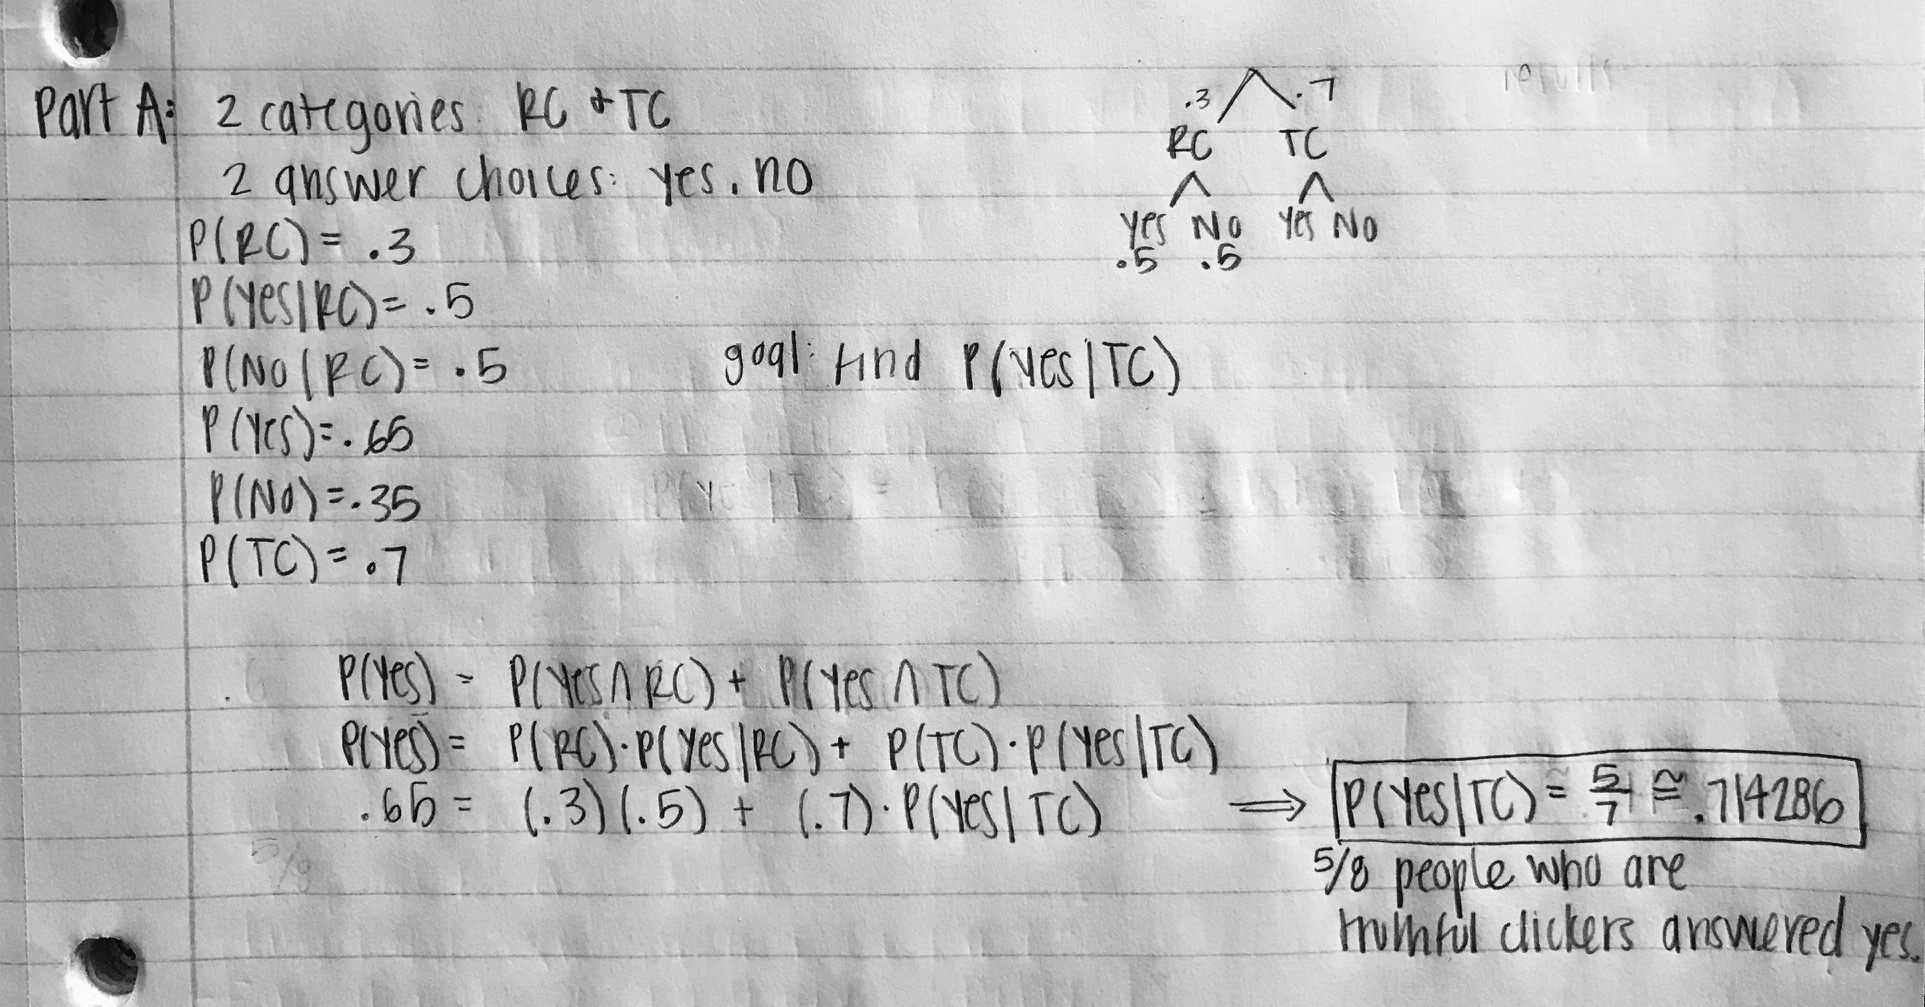 Part A: 2 categories: RC + TC
2 answer choices: yes, no
P(RC) = .3
P(Yes|RC) = .5
P(No|RC) = .5
P(Yes) = .65
P(No) = .35
P(TC) = .7
.3 .7
RC TC
Yes No Yes No
.5 .5
goal: find P(Yes|TC)
P(Yes) = P(Yes∩RC) + P(Yes∩TC)
P(Yes) = P(RC)·P(Yes|RC) + P(TC)·P(Yes|TC)
.65 = (.3)(.5) + (.7)·P(Yes|TC) ⟹ P(Yes|TC) = 5/7 ≅ .714286
5/8 people who are
truthful clickers answered yes.